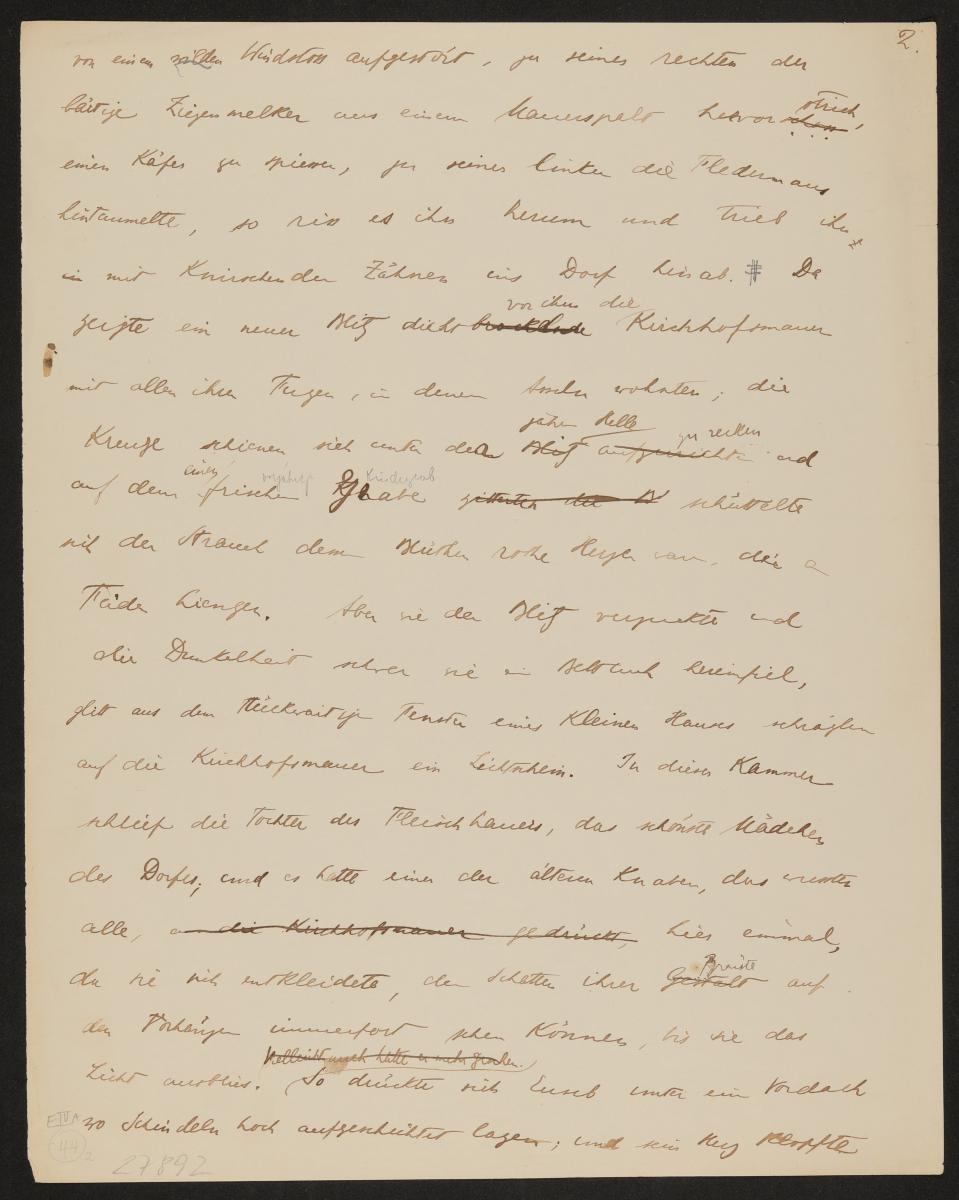 2.
von einem wilden Windstoss aufgestört, zu seiner rechten der
bärtige Ziegenmelker aus einem Mauerspalt hervor schoss strich,
einen Käfer zu spiessen, zu seiner linken die Fledermaus
hintaumelte, so riss es ihn herum und trieb ihn
mit knirschenden Zähnen ins Dorf hinab. # Da
vor ihm die
zeigte ein neuer Blitz dicht bröckelnde Kirchhofsmauer
mit allen ihren Fugen, in denen Asseln wohnten, die
jäher Helle
Kreuze schienen sich unter dem Blitz aufzurichten zu recken und
einen vorjährig Kindergrab
auf dem frischen Grabe zitterten die schüttelte
sich der Strauch dem Blüthen rothe Herzen waren, die an
Fäden hiengen. Aber wie der Blitz verzuckte und
die Dunkelheit schwer wie ein Betttuch hereinfiel,
glitt aus dem rückwärtigen Fenster eines kleinen Hauses schräg
auf die Kirchhofsmauer ein Lichtschein. In dieser Kammer
schlief die Tochter des Fleischhauers, das schönste Mädchen
des Dorfes, und es hatte einer der älteren Knaben, das wussten
alle, an die Kirchhofsmauer gedrückt, hier einmal,
Brüste
da sie sich entkleidete, den Schatten ihrer Gestalt auf
den Vorhängen immerfort sehen können, bis sie das
Vielleicht auch hätte er mehr gesehen.
Licht ausblies. So drückte sich Euseb unter ein Vordach
wo Schindeln hoch aufgeschichtet lagen; und sein Herz klopfte
E IV A
44
2
27892